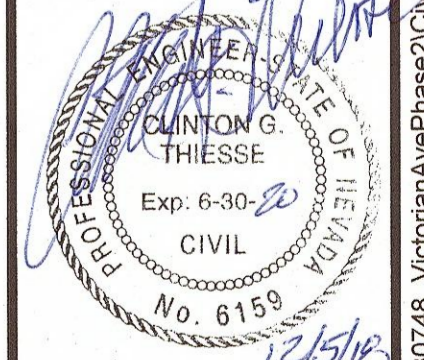 PROFESSIONAL ENGINEER-STATE OF NEVADA
CLINTON G.
THIESSE
Exp: 6-30-20
CIVIL
No. 6159
12/5/18
0748_VictorianAvePhase2\Ci